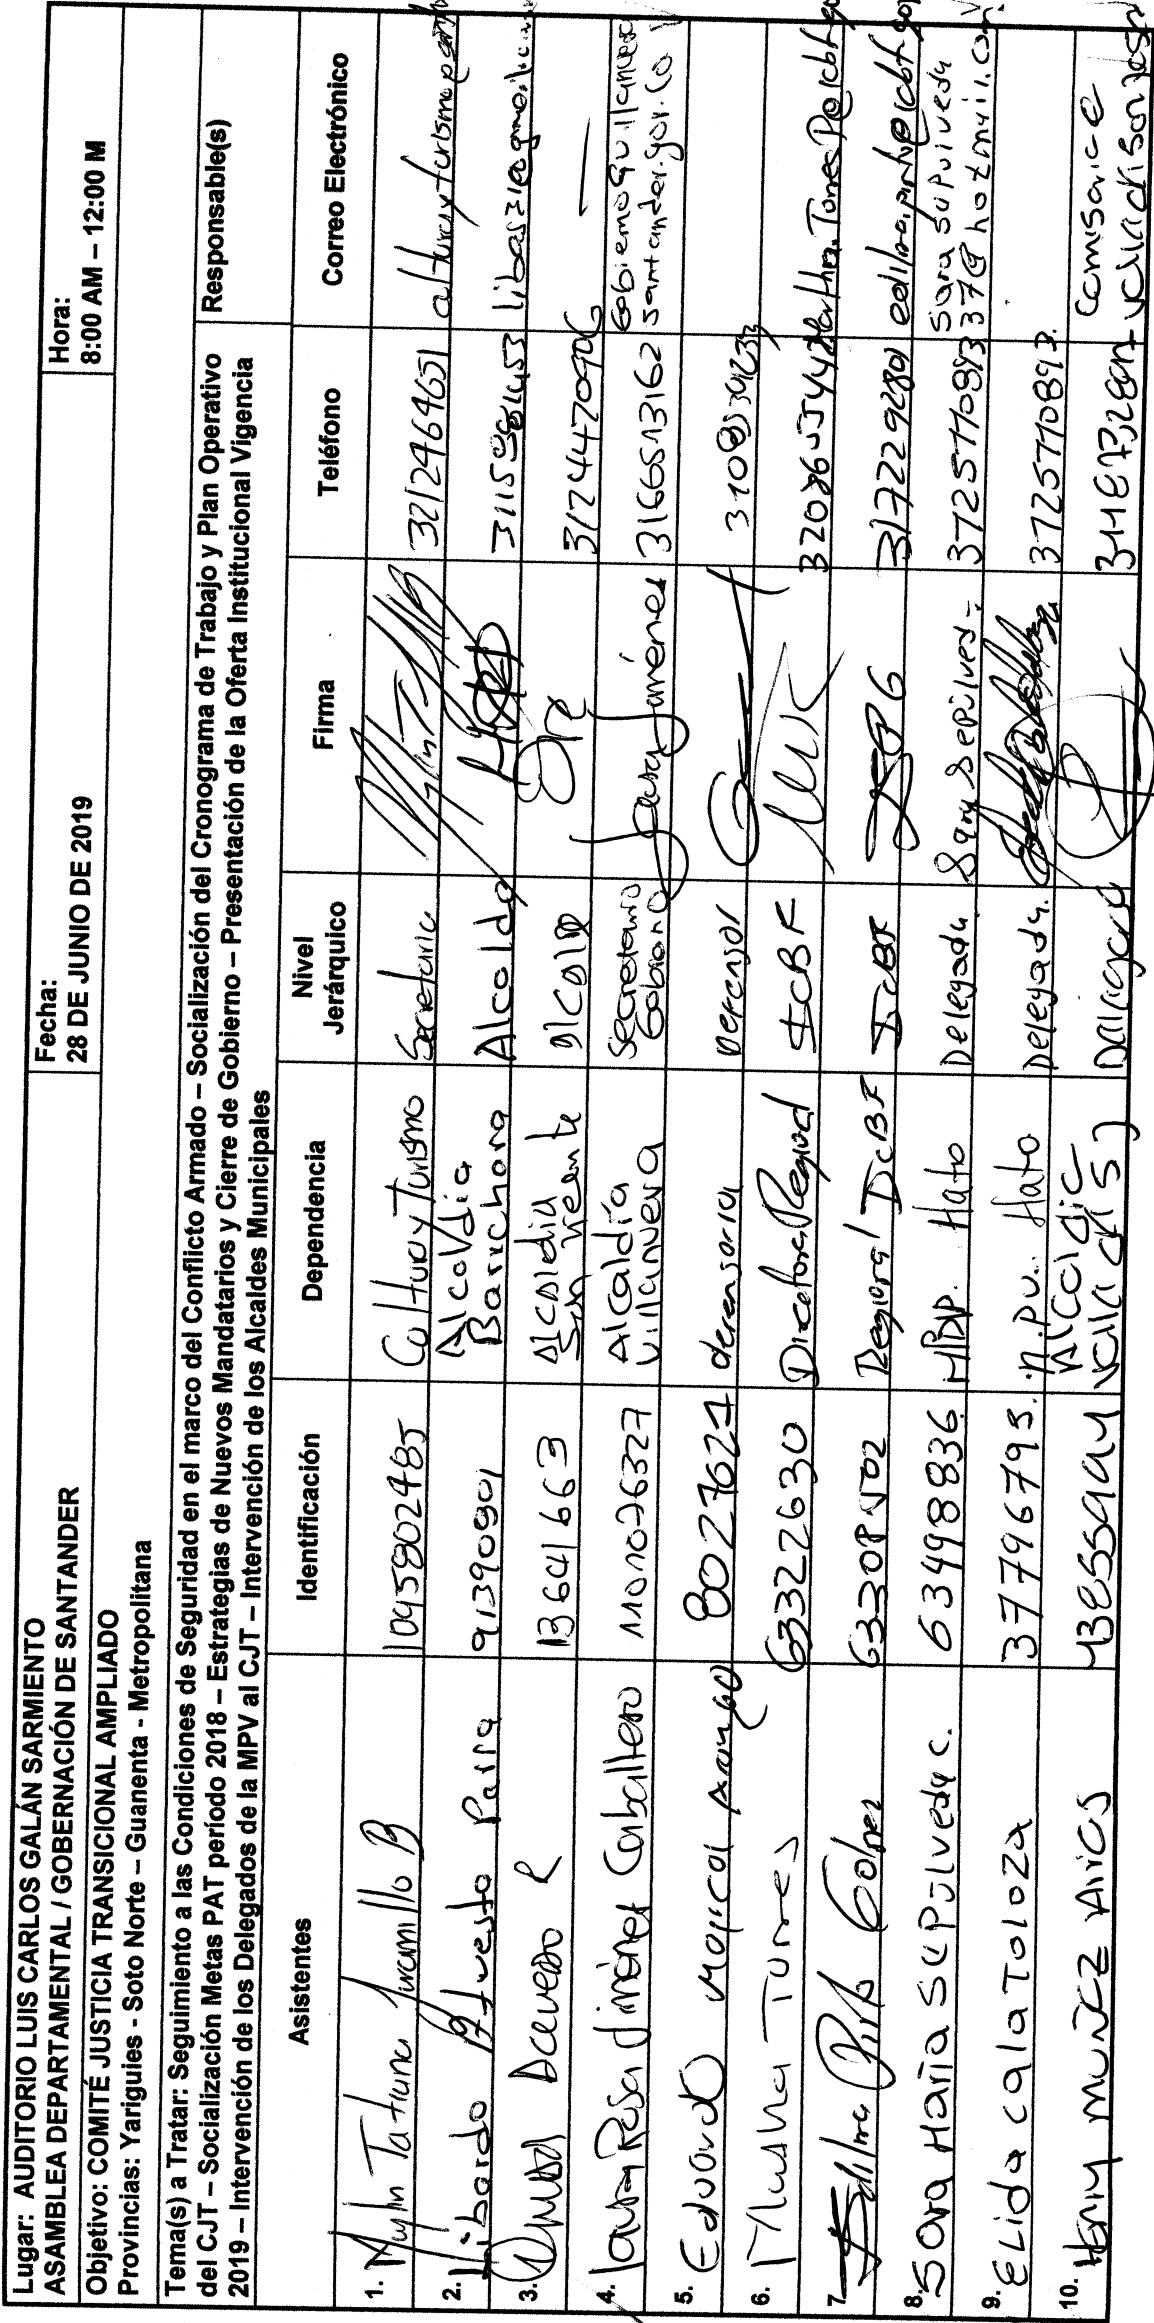 Lugar: AUDITORIO LUIS CARLOS GALÁN SARMIENTO
ASAMBLEA DEPARTAMENTAL / GOBERNACIÓN DE SANTANDER
Fecha:
28 DE JUNIO DE 2019
Hora:
8:00 AM – 12:00 M
Objetivo: COMITÉ JUSTICIA TRANSICIONAL AMPLIADO
Provincias: Yariguies - Soto Norte – Guanenta - Metropolitana
Tema(s) a Tratar: Seguimiento a las Condiciones de Seguridad en el marco del Conflicto Armado – Socialización del Cronograma de Trabajo y Plan Operativo
del CJT – Socialización Metas PAT período 2018 – Estrategias de Nuevos Mandatarios y Cierre de Gobierno – Presentación de la Oferta Institucional Vigencia
2019 – Intervención de los Delegados de la MPV al CJT – Intervención de los Alcaldes Municipales
Responsable(s)
Asistentes Identificación Dependencia Nivel Jerárquico Firma Teléfono Correo Electrónico
1. Tatiana Jaramillo B 1095802485 Cultura y Turismo Secretaria 3212464651
2. Libardo Parra 91390901 Alcaldia Barichara Alcalde
3. Acevedo R 13641663 Alcaldia San Vicente Alcalde 3124447090 —
4. Laura Rosa Jiménez Caballero 1101076327 Alcaldía Villanueva Secretaria Gobierno Laura Jiménez 3166513162 Gobierno@villanueva santander.gov.co
5. Eduardo Mariscal Arango 80227627 defensoria Defensor
6. Martha Torres 63322630 Directora Regional ICBF
7. Edilma 63308502 Regional ICBF ICBF 3172292801
8. Sara Maria Sepulveda C. 63498836 Hato Delegada Sara Sepulveda 3725770893 Sara Sepulveda 37@hotmail.com
9. Elida Cala Toloza 37796793. Hato Delegada. 3725770893.
10. Henry Muñoz Arias Alcaldia